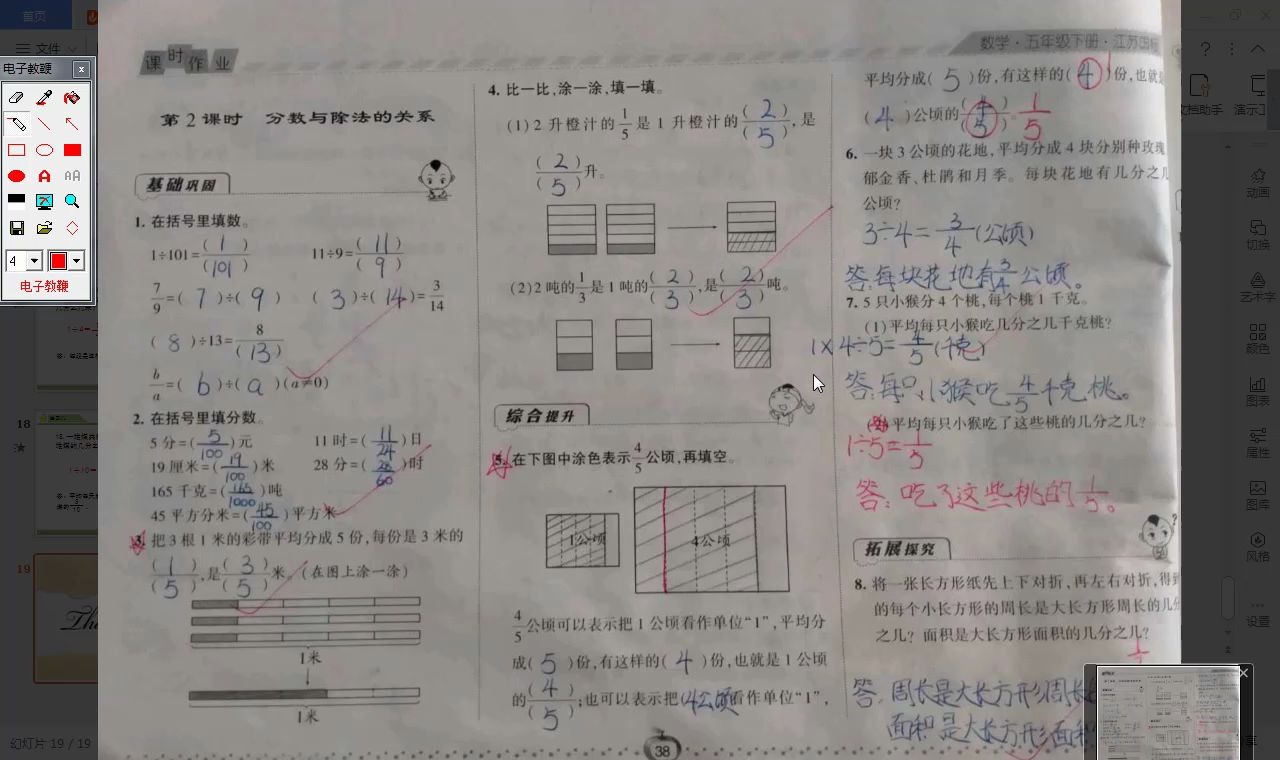 首页
文件
电子教鞭
4
电子教鞭
18
19
幻灯片 19 / 19
文档助手
演示
动画
切换
艺术字
颜色
图表
属性
图库
风格
设置
课时作业
数学·五年级下册·江苏
第2课时 分数与除法的关系
基础巩固
1. 在括号里填数。
1÷101=(1)/(101) 11÷9=(11)/(9)
7/9=(7)÷(9) (3)÷(14)=3/14
(8)÷13=8/(13)
b/a=(b)÷(a)(a≠0)
2. 在括号里填分数。
5分=(5/100)元 11时=(11/24)日
19厘米=(19/100)米 28分=(28/60)时
165千克=(165/1000)吨
45平方分米=(45/100)平方米
3. 把3根1米的彩带平均分成5份,每份是3米的
(1)/(5),是(3)/(5)米。(在图上涂一涂)
1米
1米
4. 比一比,涂一涂,填一填。
(1)2升橙汁的1/5是1升橙汁的(2)/(5),是
(2)/(5)升。
(2)2吨的1/3是1吨的(2)/(3),是(2)/(3)吨。
综合提升
5. 在下图中涂色表示4/5公顷,再填空。
1公顷 4公顷
4/5公顷可以表示把1公顷看作单位“1”,平均分
成(5)份,有这样的(4)份,也就是1公顷
的(4)/(5);也可以表示把(4公顷)看作单位“1”,
38
平均分成(5)份,有这样的(1)份,也就
(4)公顷的 1/5
6. 一块3公顷的花地,平均分成4块分别种玫瑰
郁金香、杜鹃和月季。每块花地有几分之几
公顷?
3÷4=3/4(公顷)
答:每块花地有3/4公顷。
7. 5只小猴分4个桃,每个桃1千克。
(1)平均每只小猴吃几分之几千克桃?
1×4÷5=4/5(千克)
答:每只小猴吃4/5千克桃。
平均每只小猴吃了这些桃的几分之几?
1÷5=1/5
答:吃了这些桃的1/5。
拓展探究
8. 将一张长方形纸先上下对折,再左右对折,得到
的每个小长方形的周长是大长方形周长的几分
之几?面积是大长方形面积的几分之几?
答:周长是大长方形周长
面积是大长方形面积